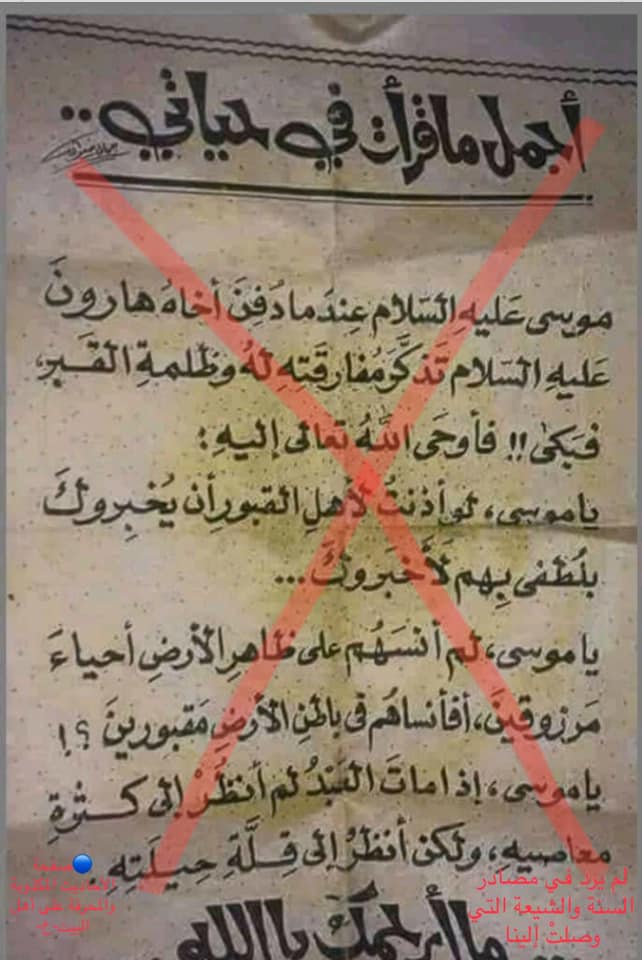 أجمل ما قرأت في حياتي..
موسى عَليهِ السَلام عِندَما دَفنَ أخاهُ هارونَ
عَليهِ السَلام تَذكَّرَ مُفارقتهِ لهُ وظلمةِ القَبرِ
فبَكىٰ !! فأوحَى اللهُ تعالى إليهِ :
ياموسى، لو أذنتُ لأهلِ القبور أن يُخبِروكَ
بلُطفي بِهم لَأَخبَروكَ...
ياموسى، لم أنسَهُم على ظاهرِ الأرضِ أحياءَ
مَرزوقينَ، أفأنساهُم في باطنِ الأرضِ مَقبورينَ ؟!
ياموسى، إذا ماتَ العَبْدُ لم أنظُرْ إلى كَثرةِ
معاصيهِ، ولكن أنظُرُ إلى قِلَّةِ حِيلَتِهِ.
ما أرحمكَ يا الله
لم يرد في مصادر
السنة والشيعة التي
وصلتْ إلينا
صفحة
الأحاديث المكذوبة
والمحرفة على أهل
البيت-ع-